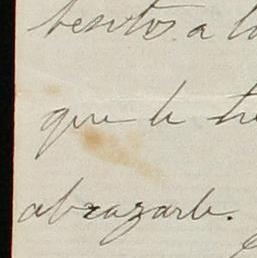 besitos a la
que le
abrazarle.